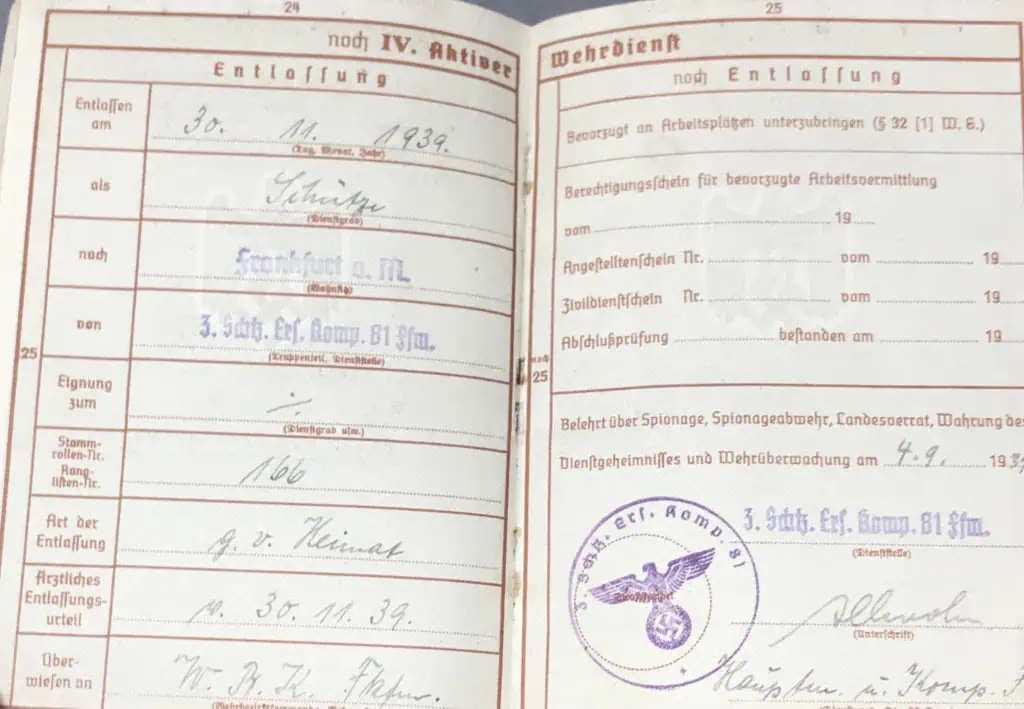 24
noch IV. Aktiver
Entlassung
Entlassen am
30. 11. 1939.
(Tag, Monat, Jahr)
als
Schütze
(Dienstgrad)
nach
Frankfurt a. M.
(Wohnsitz)
von
3. Schtz. Ers. Komp. 81 Ffm.
(Truppenteil, Dienststelle)
25
Eignung zum
(Dienstgrad usw.)
Stamm-
rollen-Nr.
Rang-
listen-Nr.
166
Art der
Entlassung
g. v. Heimat
Ärztliches
Entlassungs-
urteil
v. 30. 11. 39.
Über-
wiesen an
W. B. K. Ffm.
25
Wehrdienst
noch Entlassung
Bevorzugt an Arbeitsplätzen unterzubringen (§ 32 [1] W. G.)
Berechtigungsschein für bevorzugte Arbeitsvermittlung
vom 19
Angestelltenschein Nr. vom 19
Zivildienstschein Nr. vom 19
Abschlußprüfung bestanden am 19
noch
25
Belehrt über Spionage, Spionageabwehr, Landesverrat, Wahrung des
Dienstgeheimnisses und Wehrüberwachung am 4. 9. 193
3. Schtz. Ers. Komp. 81
3. Schtz. Ers. Komp. 81 Ffm.
(Dienststelle)
Dienststempel
(Unterschrift)
Hauptm. u. Komp.